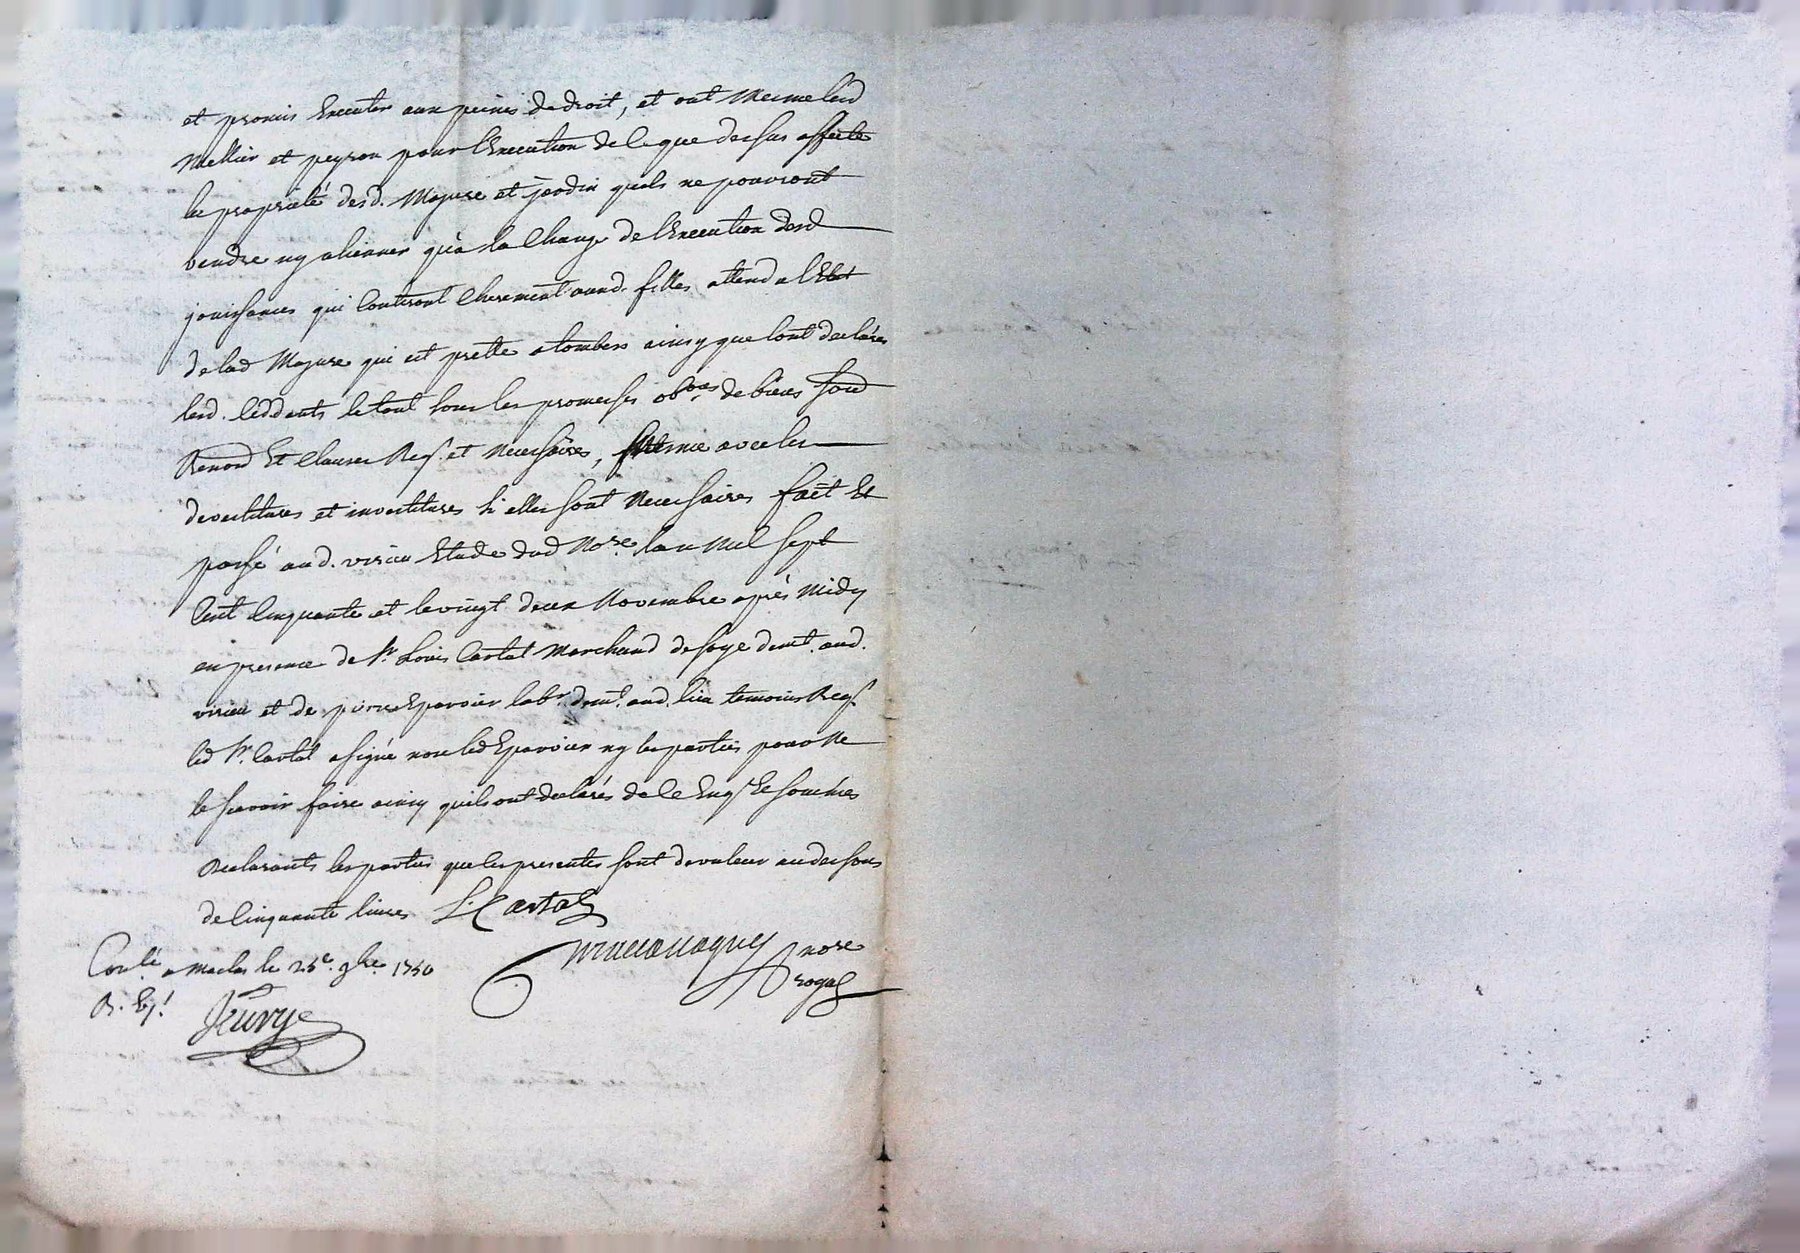 et promis Executer aux peines de droit, et ont mesme lesd
mellier et peyron pour l'Execution de le que dessus affecté
la propriété desd. Mazure et jardin quels ne pouront
vendre ny alienner qu'a la Charge de l'Execution desd
jouissances qui Couteront Cherement auxd. filles attendu l'Etat
de lad Mazure qui est prette a tomber ainsy que l'ont declarés
lesd. Ceddents le tout sous les promesses ob.ons de biens soud
Renond Et Clauses Req.s et Necessaires, avec les
devestitures et investitures si elles sont Necessaires fait Et
passé aud. virieu Etude dud No.re l'an Mil sept
Cent Cinquante et le vingt deux Novembre après Midy
en presence de Sr. Louis Cartal Marchand de soye demt. aud.
virieu et de pierre Eparvier labr. demt. aud. lieu temoins Req.s
led Sr. Cartal a signé non led Eparvier ny les parties pour ne
le scavoir faire ainsy quils ont declarés de le Enq.s Et sommés
Declarants les parties que les presentes sont de valeur au dessous
de Cinquante livres L. Cartal
nore
royal
Con.lé a Maclas le 25e. 9bre. 1750
R.